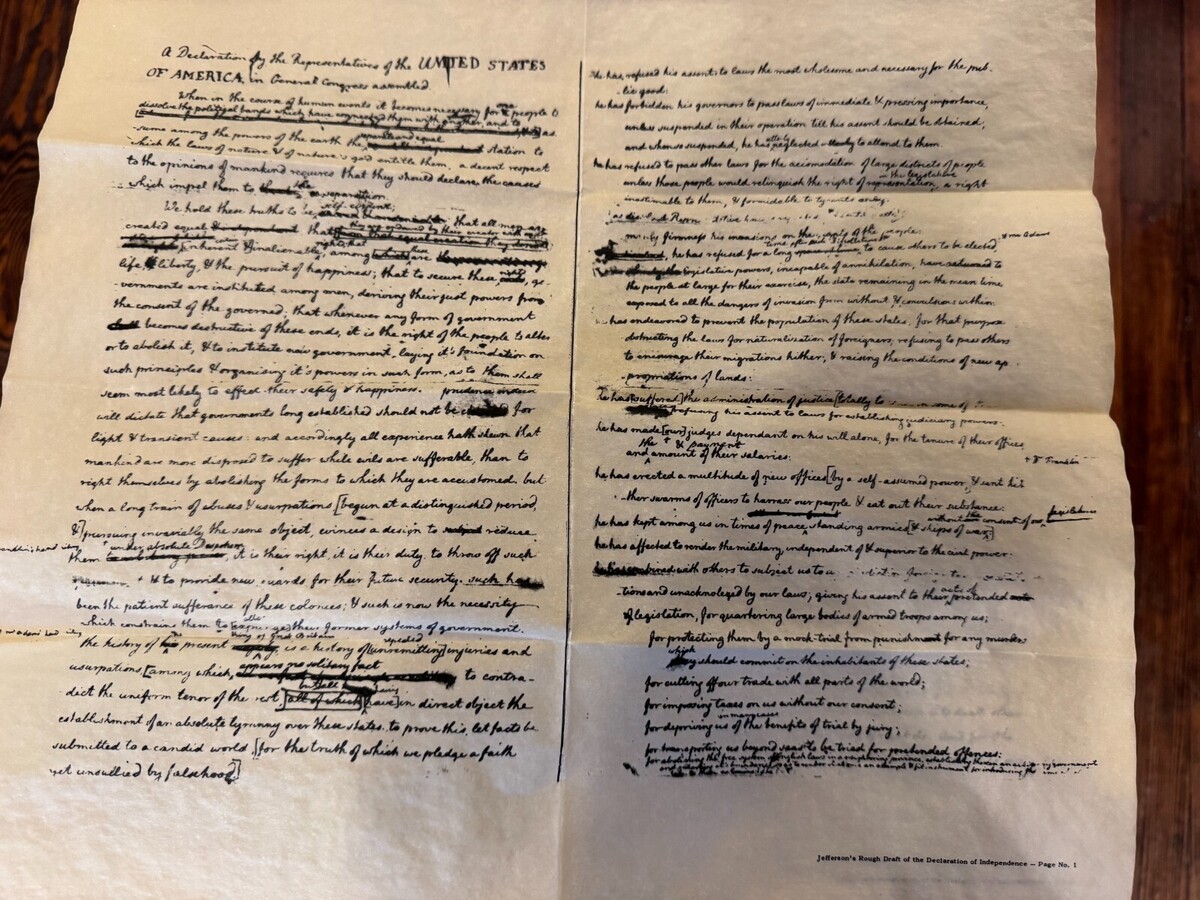 A Declaration by the Representatives of the UNITED STATES
OF AMERICA, in General Congress assembled.
When in the course of human events it becomes necessary for one people to
dissolve the political bands which have connected them with another, and to as
-sume among the powers of the earth the separate and equal station to
which the laws of nature & of nature's god entitle them, a decent respect
to the opinions of mankind requires that they should declare the causes
which impel them to the separation.
We hold these truths to be self-evident; that all men are
created equal that they are endowed by their creator with
inherent & inalienable rights; that among these are
life, & liberty, & the pursuit of happiness; that to secure these rights, go-
vernments are instituted among men, deriving their just powers from
the consent of the governed; that whenever any form of government
becomes destructive of these ends, it is the right of the people to alter
or to abolish it, & to institute new government, laying it's foundation on
such principles & organising it's powers in such form, as to them shall
seem most likely to effect their safety & happiness. prudence indeed
will dictate that governments long established should not be for
light & transient causes: and accordingly all experience hath shewn that
mankind are more disposed to suffer while evils are sufferable, than to
right themselves by abolishing the forms to which they are accustomed. but
when a long train of abuses & usurpations [begun at a distinguished period,
&] pursuing invariably the same object, evinces a design to reduce
them under absolute it is their right, it is their duty, to throw off such
& to provide new guards for their future security. such has
been the patient sufferance of these colonies; & such is now the necessity
which constrains them to [expunge] their former systems of government.
the history of the present king of Great Britain is a history of [unremitting] repeated injuries and
usurpations, [among which, appears no solitary fact to contra-
dict the uniform tenor of the rest, [all of which] have] in direct object the
establishment of an absolute tyranny over these states. to prove this, let facts be
submitted to a candid world, [for the truth of which we pledge a faith
yet unsullied by falsehood]
he has refused his assent to laws the most wholesome and necessary for the pub-
-lic good:
he has forbidden his governors to pass laws of immediate & pressing importance,
unless suspended in their operation till his assent should be obtained,
and when so suspended, he has neglected utterly to attend to them.
he has refused to pass other laws for the accomodation of large districts of people
unless those people would relinquish the right of representation in the legislature, a right
inestimable to them, & formidable to tyrants only:
firmness his invasions on the rights of the people:
he has refused for a long to cause others to be elected,
legislative powers, incapable of annihilation, have returned to
the people at large for their exercise, the state remaining in the mean time
exposed to all the dangers of invasion from without & convulsions within:
has endeavored to prevent the population of these states; for that purpose
obstructing the laws for naturalization of foreigners, refusing to pass others
to encourage their migrations hither; & raising the conditions of new ap-
-propriations of lands:
he has [suffered] the administration of justice [totally to
refusing his assent to laws for establishing judiciary powers:
he has made [our] judges dependant on his will alone, for the tenure of their offices,
and the amount & payment of their salaries:
+ Dr Franklin
he has erected a multitude of new offices [by a self-assumed power,] & sent hi-
-ther swarms of officers to harrass our people & eat out their substance:
he has kept among us in times of peace, standing armies [& ships of war] without the consent of our legislatures
he has affected to render the military, independent of & superior to the civil power:
with others to subject us to a
-tions and unacknoleged by our laws; giving his assent to their pretended acts of
of legislation, for quartering large bodies of armed troops among us;
for protecting them by a mock-trial from punishment for any murders
which they should commit on the inhabitants of these states;
for cutting off our trade with all parts of the world;
for imposing taxes on us without our consent;
for depriving us in many cases of the benefits of trial by jury;
for transporting us beyond seas to be tried for pretended offences:
Jefferson's Rough Draft of the Declaration of Independence — Page No. 1